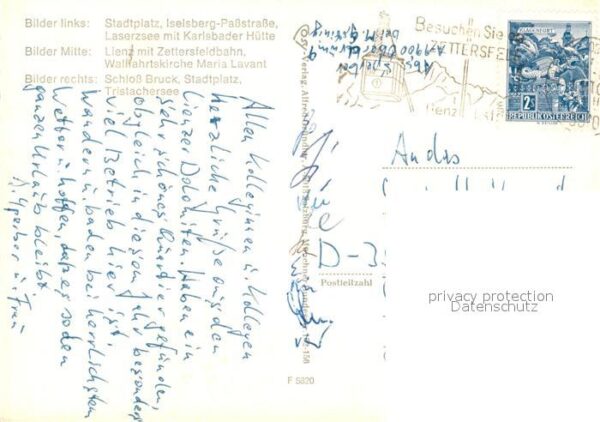 Bilder links: Stadtplatz, Iselsberg-Paßstraße,
Laserzsee mit Karlsbader Hütte
Bilder Mitte: Lienz mit Zettersfeldbahn,
Wallfahrtskirche Maria Lavant
Bilder rechts: Schloß Bruck, Stadtplatz,
Tristachersee
Allen Kolleginnen u. Kollegen
herzliche Grüße aus den
Lienzer Dolomiten. Haben ein
sehr schönes Quartier gefunden,
obgleich in diesem Jahr besonders
viel Betrieb hier ist.
Wandern u. baden bei herrlichstem
Wetter u. hoffen, daß es so den
ganzen Urlaub bleibt.
Sperber u. Frau
F 5820
Abs. Sperber
A 9900
Besuchen Sie
ZETTERSFEL
Lienz
KLAGENFURT
2S
REPUBLIK ÖSTERREICH
An das
D-3
Postleitzahl
privacy protection
Datenschutz